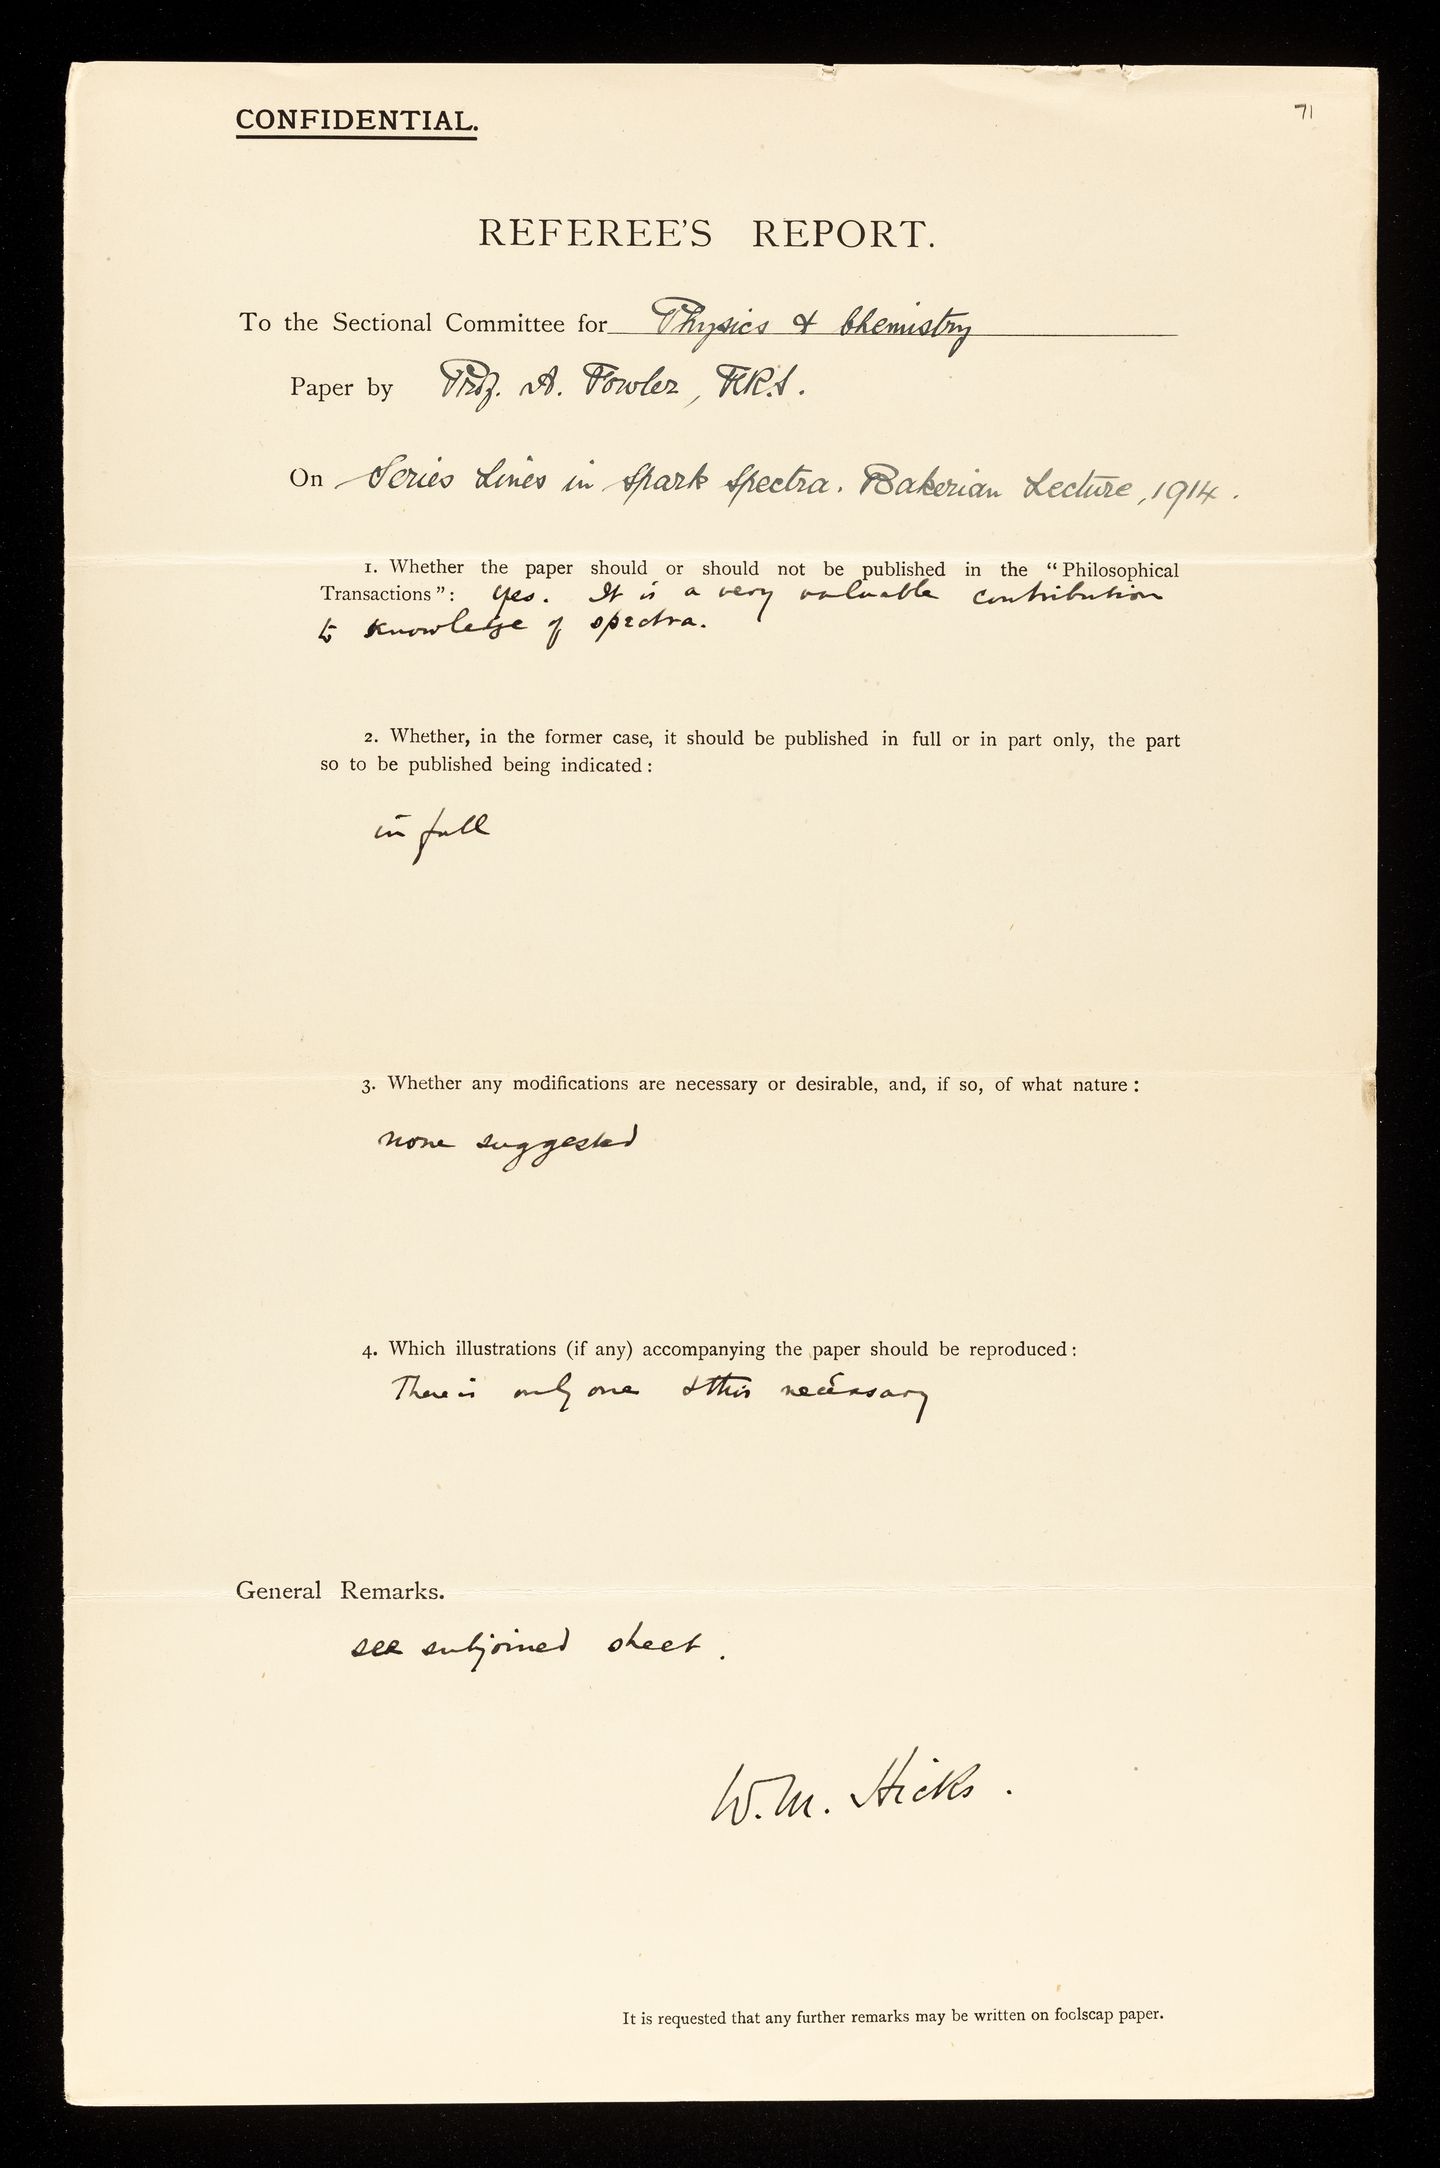 CONFIDENTIAL.
71
REFEREE'S REPORT.
To the Sectional Committee for Physics & Chemistry
Paper by Prof. A. Fowler, F.R.S.
On Series Lines in Spark Spectra. Bakerian Lecture, 1914.
1. Whether the paper should or should not be published in the "Philosophical
Transactions": Yes. It is a very valuable contribution
to knowledge of spectra.
2. Whether, in the former case, it should be published in full or in part only, the part
so to be published being indicated:
in full
3. Whether any modifications are necessary or desirable, and, if so, of what nature:
none suggested
4. Which illustrations (if any) accompanying the paper should be reproduced:
There is only one & this necessary
General Remarks.
see subjoined sheet.
W. M. Hicks.
It is requested that any further remarks may be written on foolscap paper.